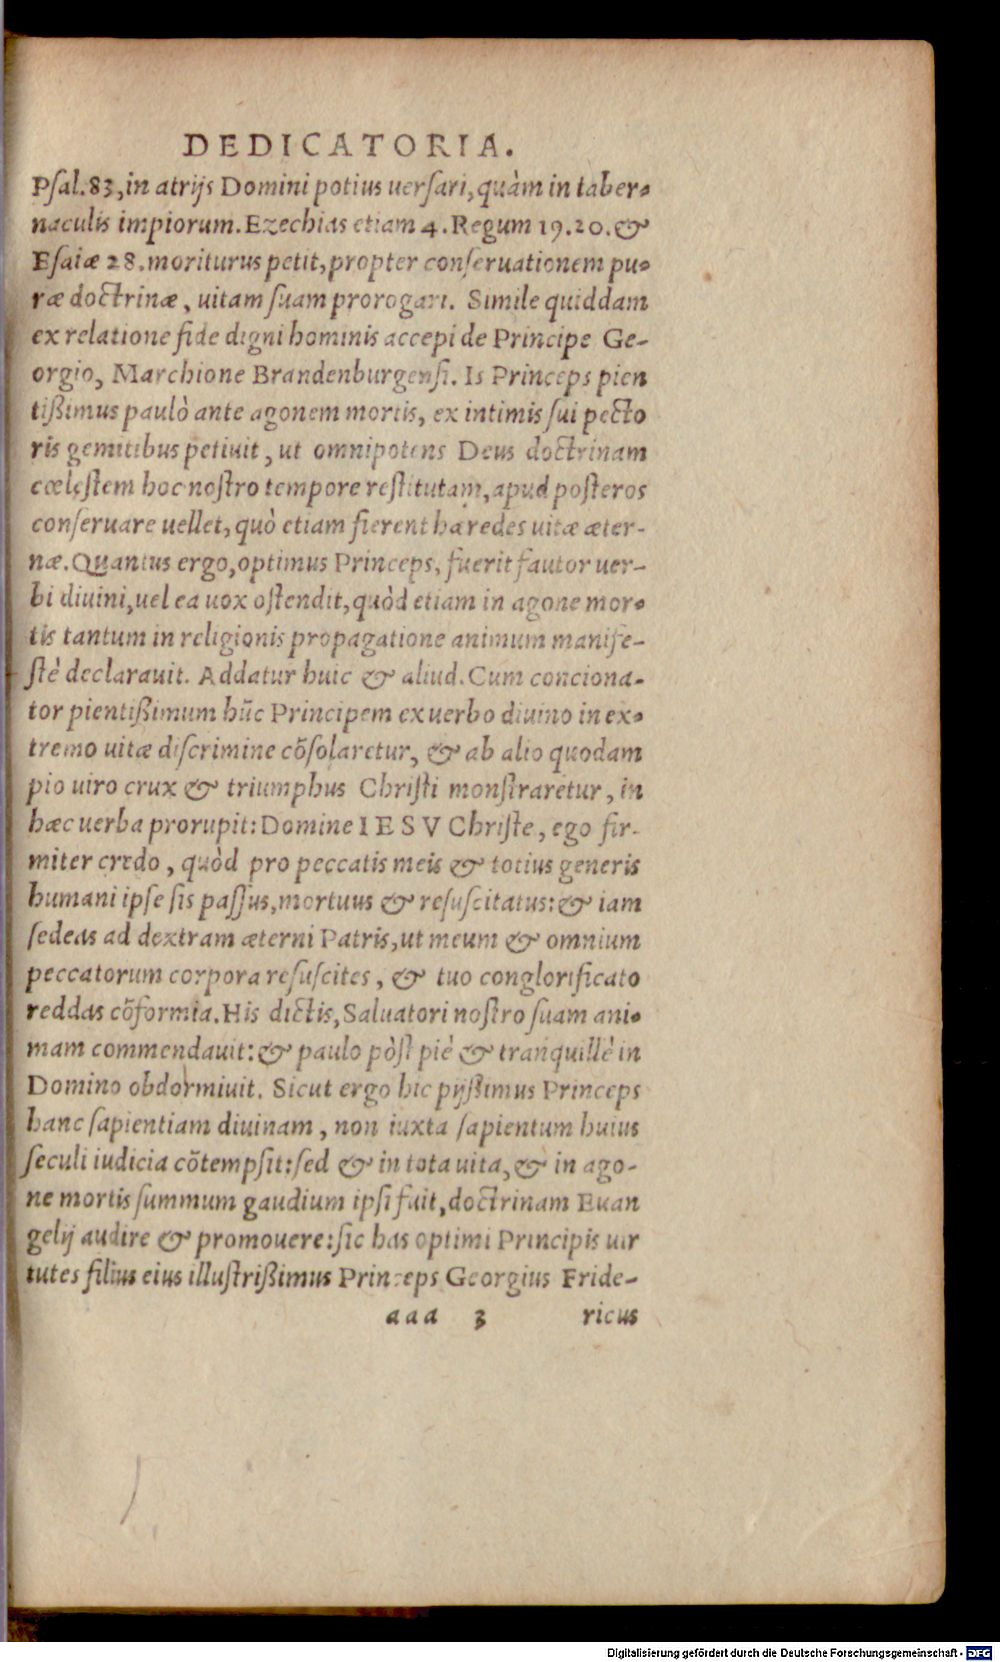 DEDICATORIA.
Psal.83, in atrijs Domini potius uersari, quàm in taber-
naculis impiorum. Ezechias etiam 4. Regum 19.20. &
Esaiæ 28. moriturus petit, propter conseruationem pu-
ræ doctrinæ, uitam suam prorogari. Simile quiddam
ex relatione fide digni hominis accepi de Principe Ge-
orgio, Marchione Brandenburgensi. Is Princeps pien
tißimus paulò ante agonem mortis, ex intimis sui pecto
ris gemitibus petiuit, ut omnipotens Deus doctrinam
cœlestem hoc nostro tempore restitutam, apud posteros
conseruare uellet, quò etiam fierent hæredes uitæ æter-
næ. Quantus ergo, optimus Princeps, fuerit fautor uer-
bi diuini, uel ea uox ostendit, quòd etiam in agone mor-
tis tantum in religionis propagatione animum manife-
stè declarauit. Addatur huic & aliud. Cum conciona-
tor pientißimum hũc Principem ex uerbo diuino in ex-
tremo uitæ discrimine cõsolaretur, & ab alio quodam
pio uiro crux & triumphus Christi monstraretur, in
hæc uerba prorupit: Domine IESV Christe, ego fir-
miter credo, quòd pro peccatis meis & totius generis
humani ipse sis passus, mortuus & resuscitatus: & iam
sedeas ad dextram æterni Patris, ut meum & omnium
peccatorum corpora resuscites, & tuo conglorificato
reddas cõformia. His dictis, Saluatori nostro suam ani-
mam commendauit: & paulo pòst piè & tranquillè in
Domino obdormiuit. Sicut ergo hic pijßimus Princeps
hanc sapientiam diuinam, non iuxta sapientum huius
seculi iudicia cõtempsit: sed & in tota uita, & in ago-
ne mortis summum gaudium ipsi fuit, doctrinam Euan
gelij audire & promouere: sic has optimi Principis uir
tutes filius eius illustrißimus Princeps Georgius Fride-
aaa 3 ricus
Digitalisierung gefördert durch die Deutsche Forschungsgemeinschaft - DFG